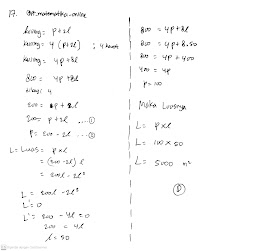 17. @at_matematika_online
keliling = p+2l
keliling = 4 (p+2l) ; 4 kawat
keliling = 4p + 8l
800 = 4p + 8l
200 = p + 2l
200 = p + 2l ... ①
p = 200 - 2l ... ②
L = Luas = p x l
= (200 - 2l) l
= 200l - 2l²
L = 200l - 2l²
L' = 0
L' = 200 - 4l = 0
200 = 4l
l = 50
800 = 4p + 8l
800 = 4p + 8.50
800 = 4p + 400
400 = 4p
p = 100
Maka Luasnya
L = p x l
L = 100 x 50
L = 5000 m²
D